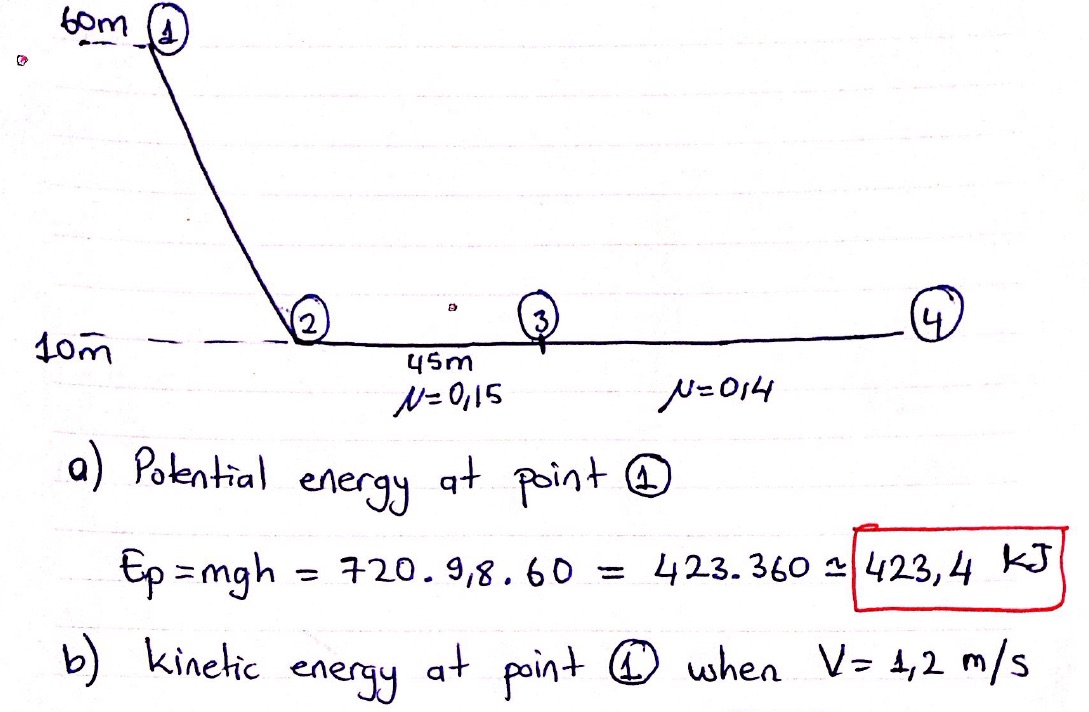 60m ①
② ③ ④
10m
45m
μ=0,15 μ=0,4
a) Potential energy at point ①
Ep=mgh = 720.9,8.60 = 423.360 ≃ 423,4 kJ
b) kinetic energy at point ① when V= 1,2 m/s